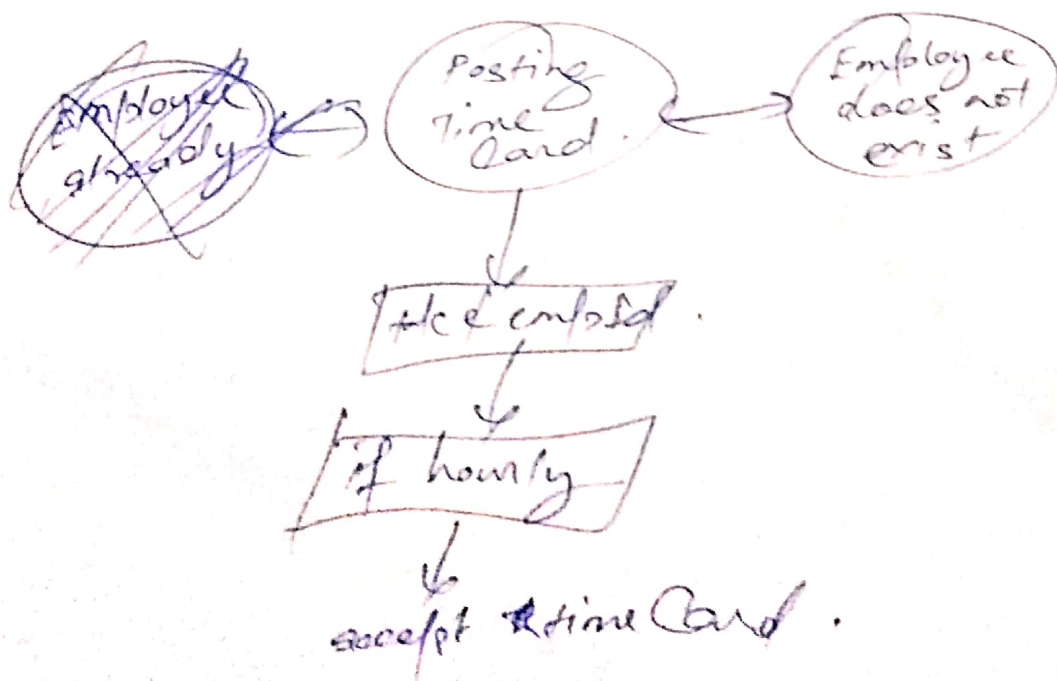 Employee
already
Posting
Time
Card.
Employee
does not
exist
empId.
if hourly
accept timeCard.